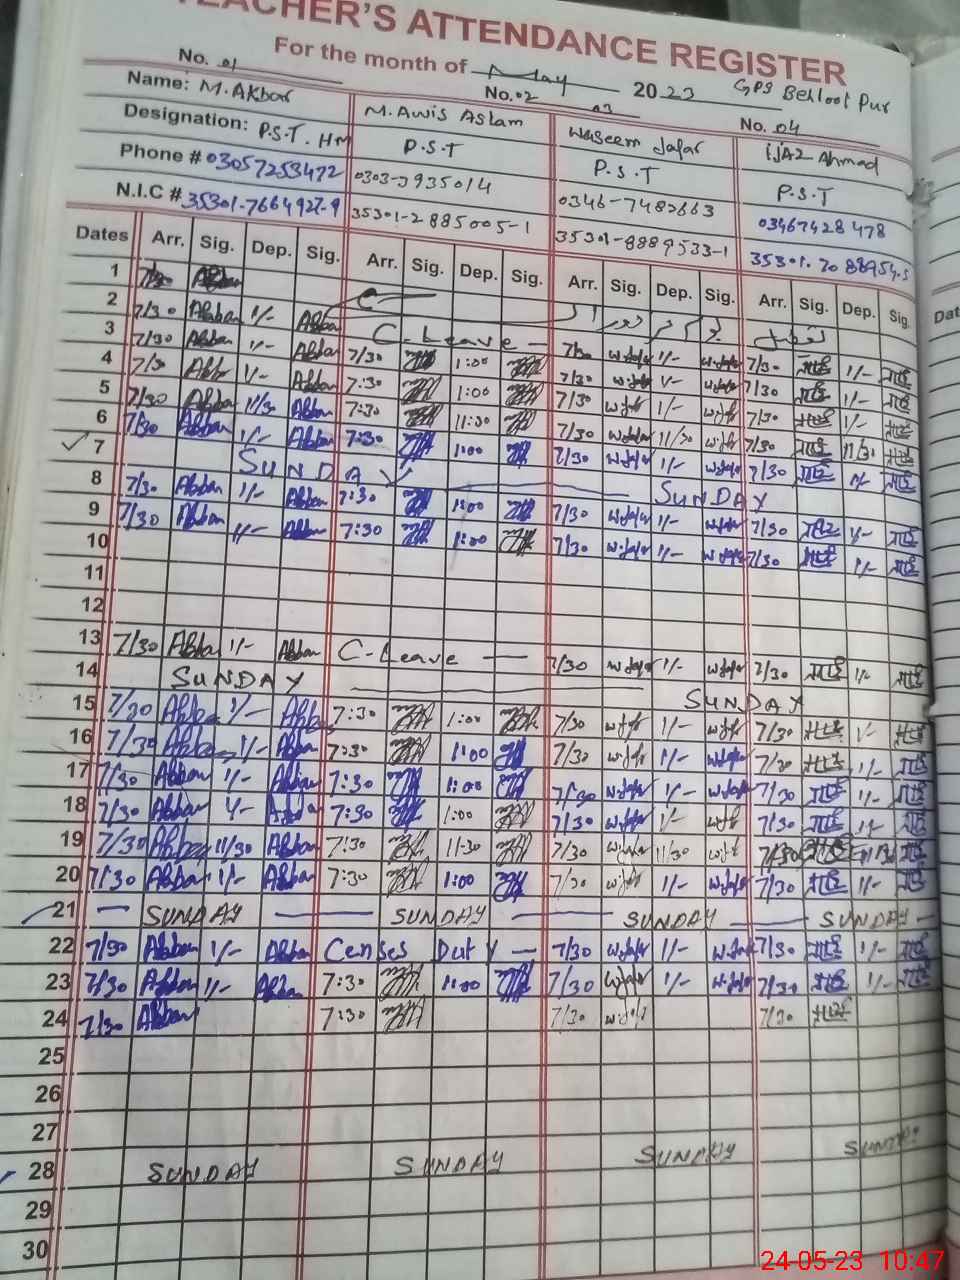 TEACHER'S ATTENDANCE REGISTER
For the month of May 2023 GPS Behloot Pur
No. 01 No. 02 03 No. 04
Name: M. Akbar M. Awis Aslam Waseem Jafar IJAZ Ahmad
Designation: P.S.T. HM P.S.T P.S.T P.S.T
Phone # 03057253472 0303-3935014 0346-7482663 03467428478
N.I.C # 35301-7664927-9 35301-2885005-1 35301-8889533-1 35301.7088954.5
Dates Arr. Sig. Dep. Sig. Arr. Sig. Dep. Sig. Arr. Sig. Dep. Sig. Arr. Sig. Dep. Sig.
1 7/30 Akbar
2 7/30 Akbar 1/- Akbar C-Leave
3 7/30 Akbar 1/- Akbar 7/30 1:00 7/30 w.Jafar 1/- w.Jafar 7/30 1/-
4 7/30 Akbar 1/- Akbar 7:30 1:00 7/30 w.Jafar 1/- w.Jafar 7/30 1/-
5 7/30 Akbar 11/30 Akbar 7:30 11:30 7/30 w.Jafar 1/- w.Jafar 7/30 1/-
6 7/30 Akbar 1/- Akbar 7:30 1:00 7/30 w.Jafar 11/30 w.Jafar 7/30 11/30
7 SUNDAY 7/30 w.Jafar 1/- w.Jafar 7/30 1/-
8 7/30 Akbar 1/- Akbar 7:30 1:00 SUNDAY
9 7/30 Akbar 1/- Akbar 7:30 1:00 7/30 w.Jafar 1/- w.Jafar 7/30 1/-
10 7/30 w.Jafar 1/- w.Jafar 7/30 1/-
11
12
13 7/30 Akbar 1/- Akbar C-Leave 7/30 w.Jafar 1/- w.Jafar 7/30 1/-
14 SUNDAY SUNDAY
15 7/30 Akbar 1/- Akbar 7:30 1:00 7/30 w.Jafar 1/- w.Jafar 7/30 1/-
16 7/30 Akbar 1/- Akbar 7:30 1:00 7/30 w.Jafar 1/- w.Jafar 7/30 1/-
17 7/30 Akbar 1/- Akbar 7:30 1:00 7/30 w.Jafar 1/- w.Jafar 7/30 1/-
18 7/30 Akbar 1/- Akbar 7:30 1:00 7/30 w.Jafar 1/- w.Jafar 7/30 1/-
19 7/30 Akbar 11/30 Akbar 7:30 11-30 7/30 w.Jafar 11/30 w.Jafar 7/30
20 7/30 Akbar 1/- Akbar 7:30 1:00 7/30 w.Jafar 1/- w.Jafar 7/30 1/-
21 SUNDAY SUNDAY SUNDAY SUNDAY
22 7/30 Akbar 1/- Akbar Censes Duty 7/30 w.Jafar 1/- w.Jafar 7/30 1/-
23 7/30 Akbar 1/- Akbar 7:30 1:00 7/30 w.Jafar 1/- w.Jafar 7/30 1/-
24 7/30 Akbar 7:30 7/30 w.Jafar 7/30
25
26
27
28 SUNDAY SUNDAY SUNDAY SUNDAY
29
30
24-05-23 10:47